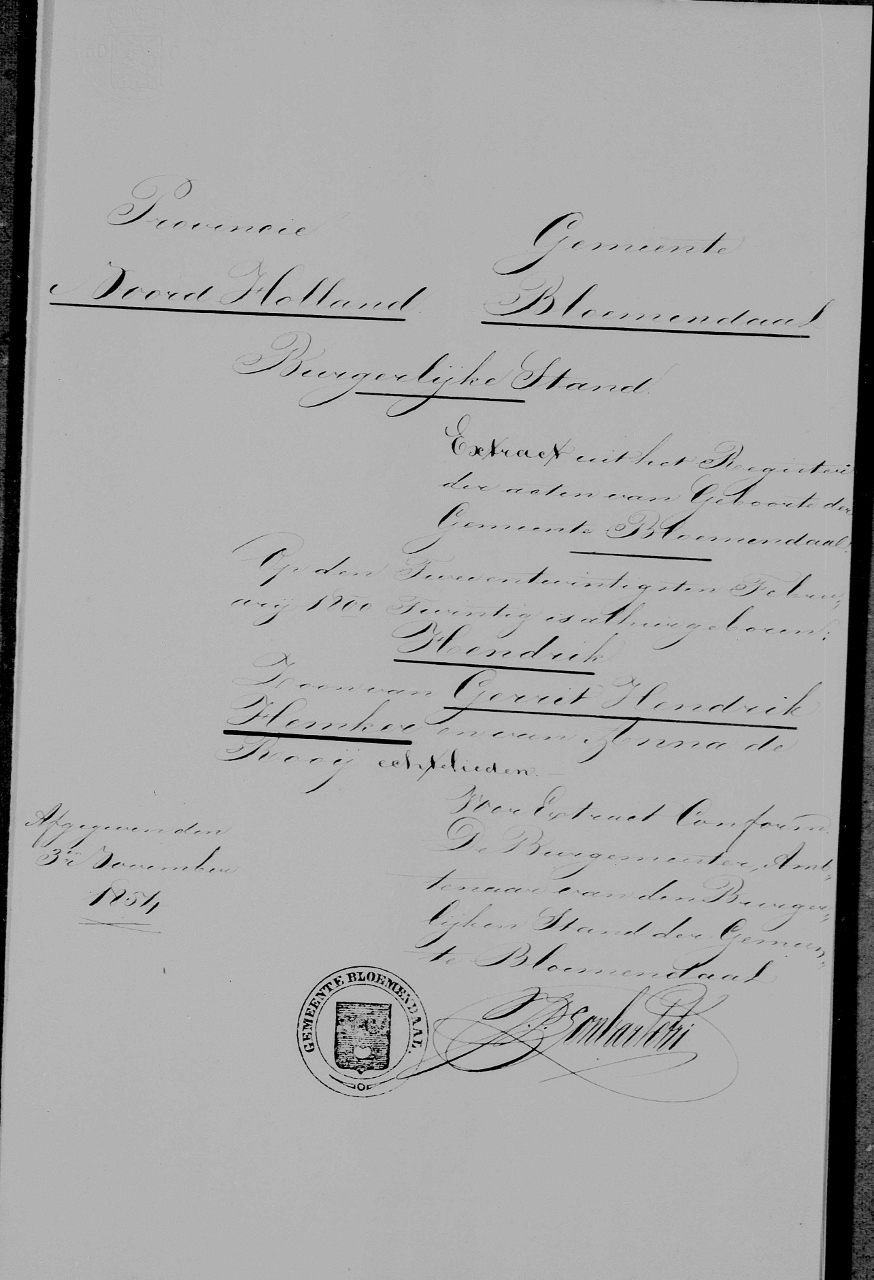 Provincie Gemeente
Noord Holland Bloemendaal
Burgerlijke Stand
Extract uit het Register
der acten van Geboorte der
Gemeente Bloemendaal.
Op den Tweentwintigsten Febru-
arij 1800 Twintig is alhier geboren:
Hendrik
Zoon van Gerrit Hendrik
Hemker en van Anna de
Rooij echtelieden.
Voor Extract Conform
De Burgemeester, Amb-
tenaar van den Burger-
lijken Stand der Gemeen-
te Bloemendaal
Afgegeven den
3en November
1854
GEMEENTE BLOEMENDAAL.